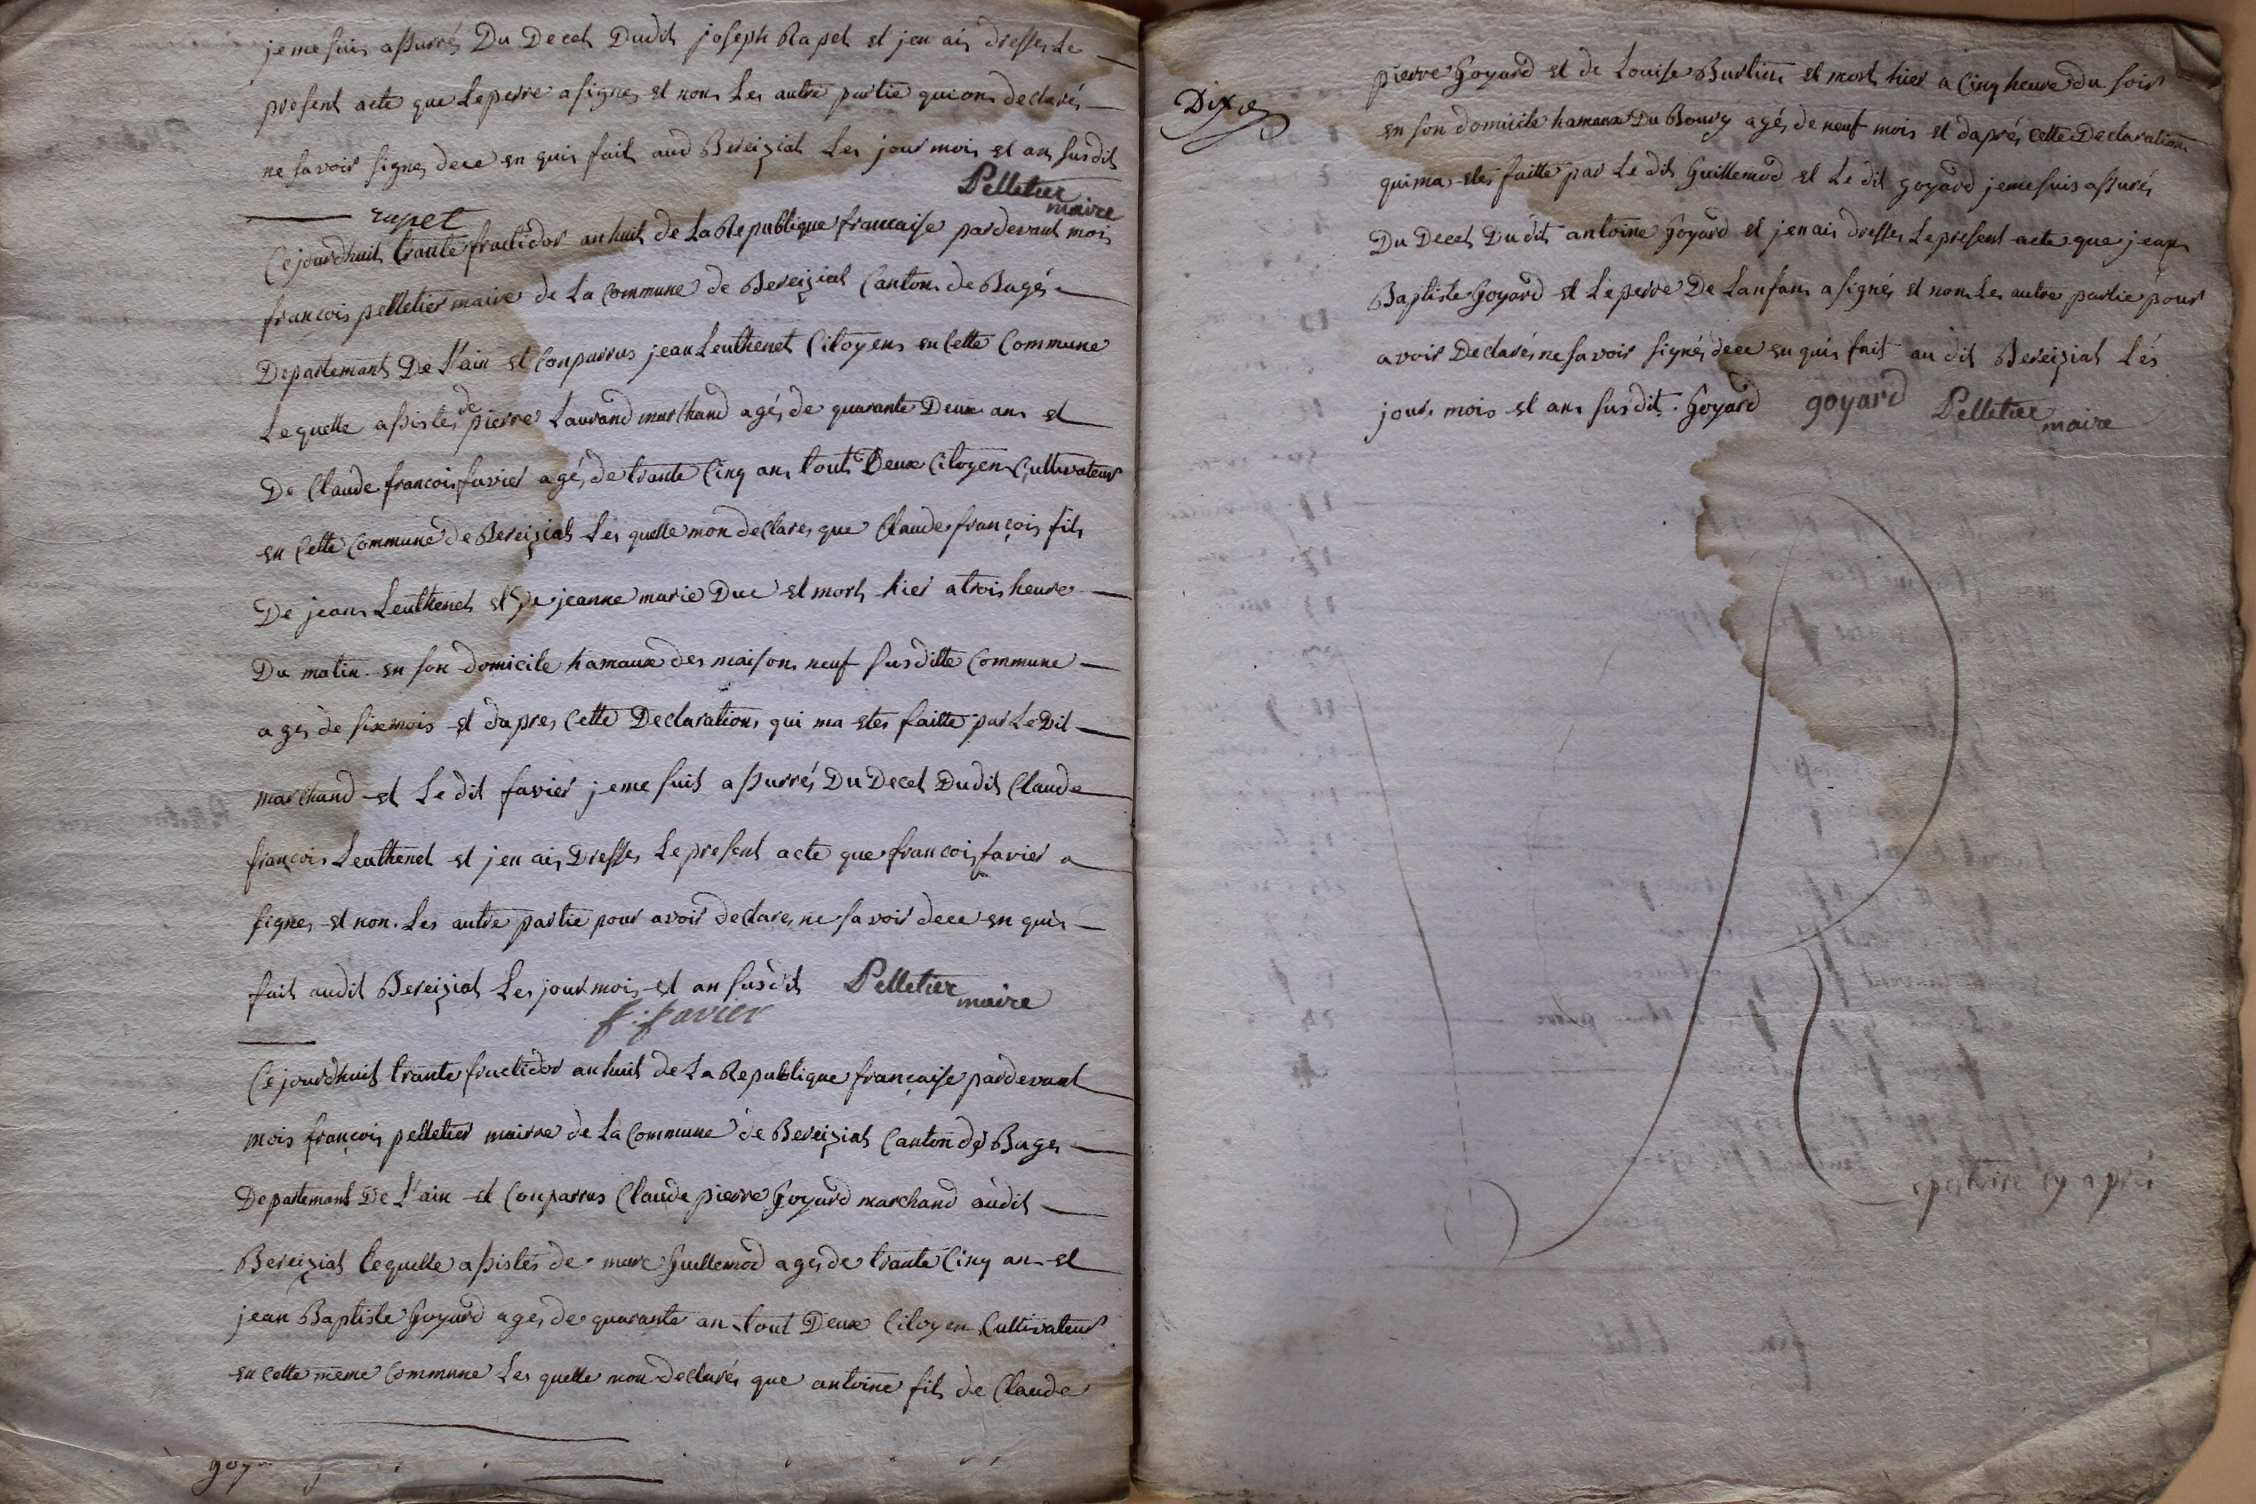 je me suis assurrés Du Decet Dudit joseph Rapet et jen ais dresses Le
present acte que Le perre a signes et non Les autre partie qui on declarés
ne savoir signes dece en quis fait aud Bereiziat Les jour mois et an susdit
Pelletier maire
rapet
Cejourdhuit trante fructidor an huit de La Republique francaise pardevant mois
francois pelletier maire de La Commune de Bereiziat Canton de Bagés
Departemant De L'ain et Conparrus jean Leuthenet Citoyen en Cette Commune
Lequelle assistes de pierre Laurand marchand agés de quarante Deux an et
De Claude francois favier agés de trante Cinq an tout Deux Citoyen Cultivateur
en Cette Commune de Bereiziat Les quelle mon declares que Claude françois fils
De jean Leuthenet et De jeanne marie Duc et mort hier a trois heure
Du matin en son domicile hamaux des maison neuf susditte Commune
ages de six mois et dapres Cette Declaration qui ma etes faitte par Le Dit
marchand et Le dit favier je me suis assurrés Du Decet Dudit Claude
françois Leuthenet et jen ais Dresses Le present acte que francois favier a
signes et non Les autre partie pour avoir declares ne savoir dece en quis
fait audit Bereiziat Les jour mois et an susdit Pelletier maire
f. favier
Cejourdhuit trante fructidor an huit de La Republique française pardevant
mois françois pelletier mairre de La Commune de Bereiziat Canton de Bages
Departemant De L'ain et Conparrus Claude pierre Goyard marchand audit
Bereiziat Lequelle assistés de marc Guillemod ages de trante Cinq an et
jean Baptiste Goyard ages de quarante an tout Deux Citoyen Cultivateur
en Cette meme Commune Les quelle mon declarés que antoine fils de Claude
Dix
pierre Goyard et de Louise Burtin et mort hier a Cinq heure du soir
en son domicile hamaux Du Bourg agés de neuf mois et daprés Cette Declaration
qui ma etes faitte par Le dit Guillemod et Le dit goyard je me suis assurés
Du Decet Dudit antoine Goyard et jen ais dresses Le present acte que jean
Baptiste Goyard et Le perre De Lanfans a signés et non Les autre partie pour
avoir Declarés ne savoir signés dece en quis fait au dit Bereiziat Lés
jour mois et an susdit. Goyard goyard Pelletier maire
cy aprés